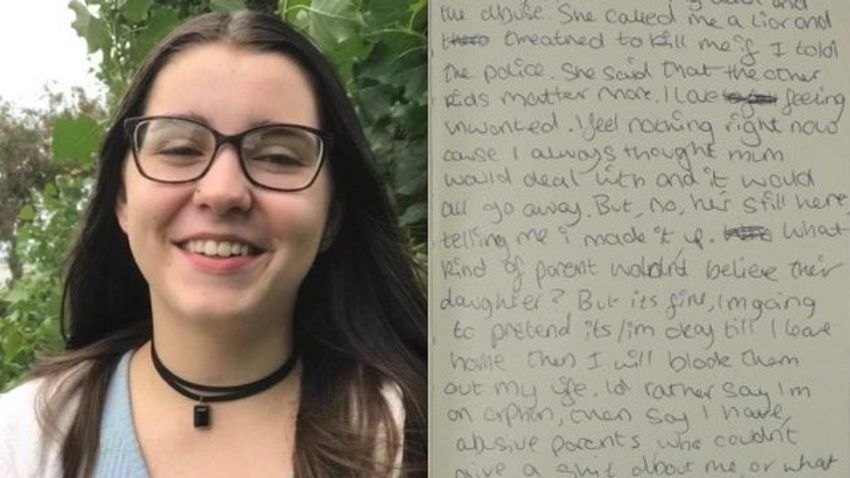 the abuse. She called me a liar and
threatned to kill me if I told
the police. She said that the other
kids matter more. I love feeling
unwanted. I feel nothing right now
cause I always thought mum
would deal with and it would
all go away. But, no, he's still here,
telling me i made it up. What
kind of parent wouldn't believe their
daughter? But its fine, Im going
to pretend its/im okay till I leave
home then I will block them
out my life. Id rather say I'm
an orphan, then say I have
abusive parents who couldn't
give a shit about me, or what